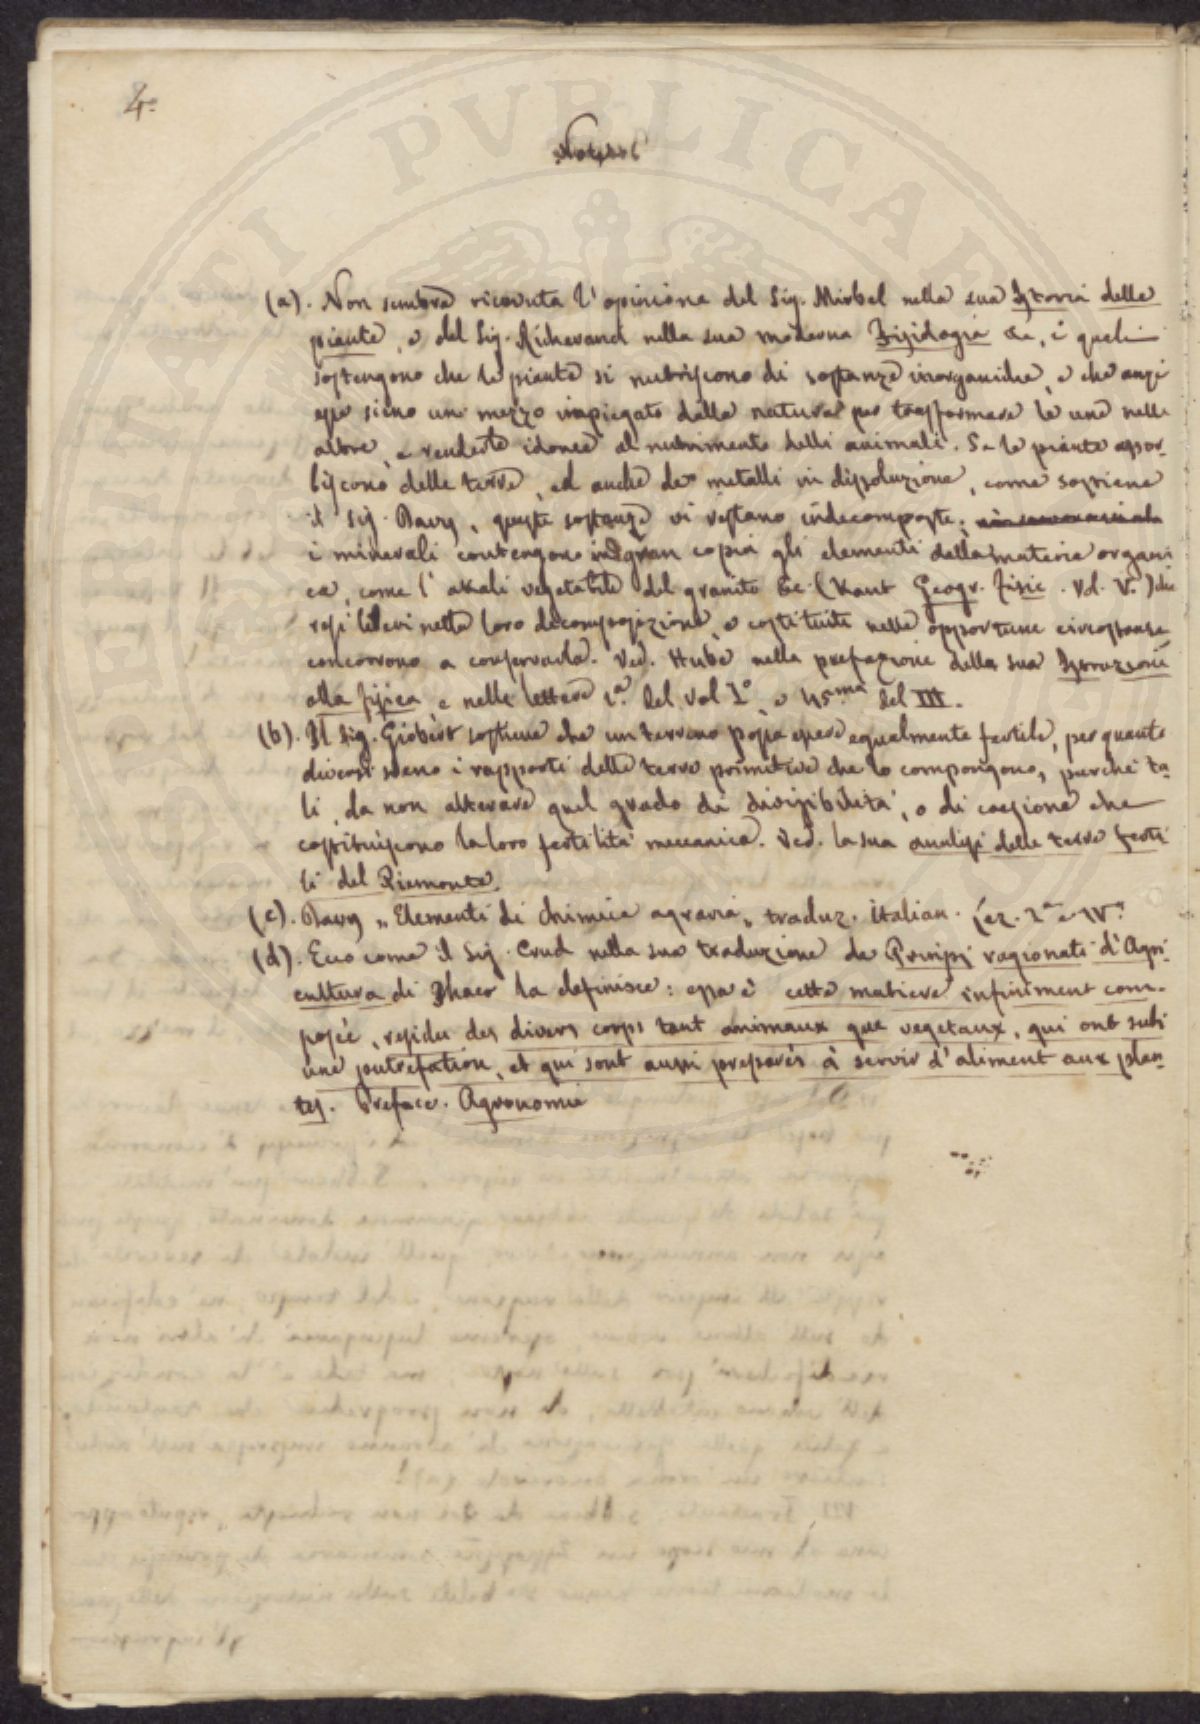 4.
(a). Non sembra ricevuta l'opinione del Sig. Mirbel nella sua Istoria delle
piante, e del Sig. Richerand nella sua moderna Fisiologia &c, i quali
sostengono che le piante si nutriscono di sostanze inorganiche, e che anzi
esse sieno un mezzo impiegato dalla natura per trasformare le une nelle
altre, e renderle idonee al nutrimento delli animali. Se le piante assor-
biscono delle terre, ed anche de' metalli in dissoluzione, come sostiene
il Sig. Davy, queste sostanze vi restano indecomposte;
i minerali contengono in gran copia gli elementi della materia organi
ca, come l'alkali vegetabile del granito &c (Kant Geogr. fisic. Vol. V.) che
resi liberi nella loro decomposizione, e costituiti nelle opportune circostanze
concorrono a conservarla. Ved. Hube nella prefazione della sua Istruzione
alla fisica e nelle lettere 1.a del vol I.o e 45.ma del III.
(b). Il Sig. Giobert sostiene che un terreno possa essere egualmente fertile, per quanto
diversi sieno i rapporti delle terre primitive che lo compongono, purché ta-
li, da non alterare quel grado di divisibilità, o di coesione che
costituiscono la loro fertilità meccanica. Ved. la sua analisi delle terre ferti
li del Piemonte.
(c). Davy „ Elementi di chimica agraria „ traduz. Italian. Lez. I.a e IV.a
(d). Ecco come il Sig. Crud nella sua traduzione de Principj ragionati d'Agri
cultura di Thaer la definisce: essa è cette matiere infiniment com-
posée, residu des divers corps tant animaux que vegetaux, qui ont subi
une putrefation, et qui sont aussi preparés à servir d'aliment aux plan-
tes. Preface. Agronomie